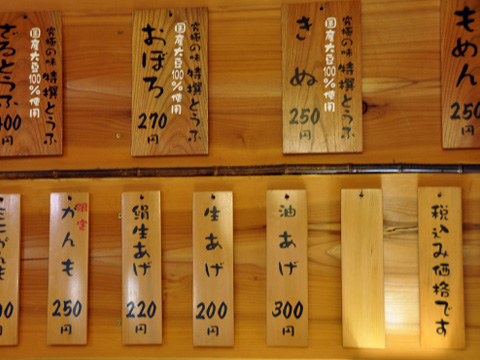 もめん
250
円
究極の味 特撰とうふ
国産大豆100%使用
きぬ
250
円
究極の味 特撰とうふ
国産大豆100%使用
おぼろ
270
円
究極の味 特撰とうふ
国産大豆100%使用
ざるとうふ
400
円
税込み価格です
油あげ
300
円
生あげ
200
円
絹生あげ
220
円
限定
がんも
250
円